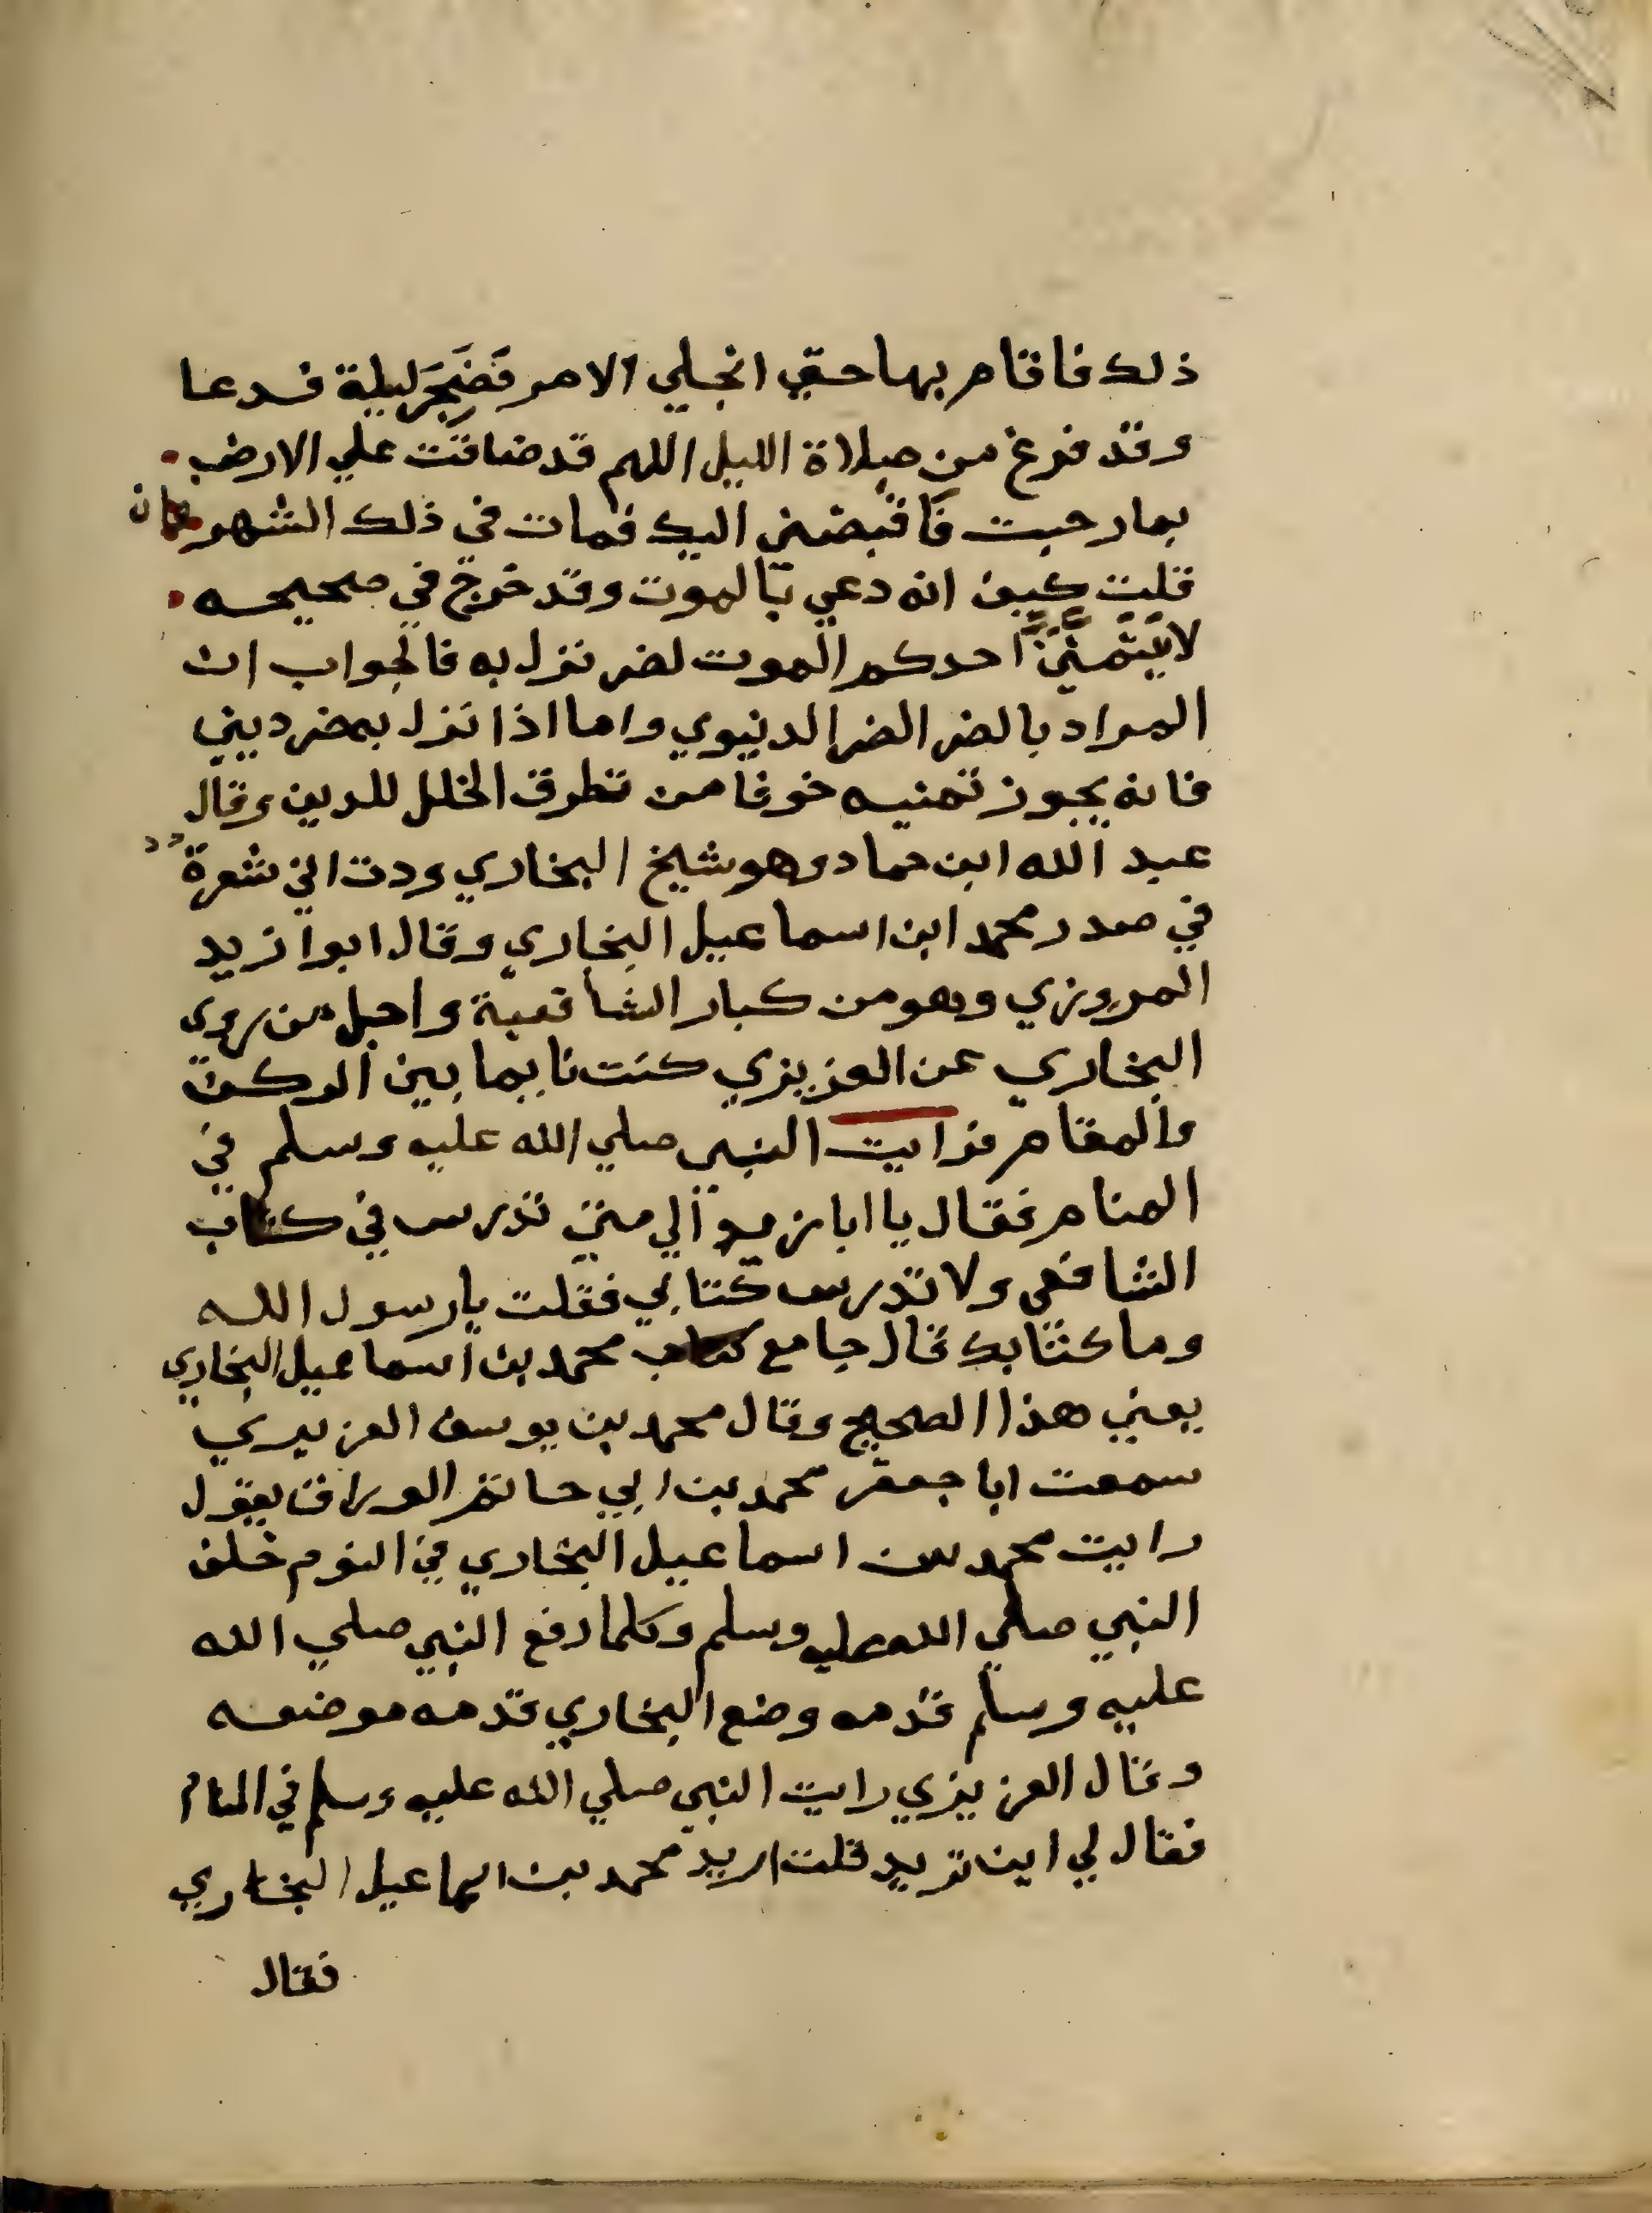 ذلك فاقام بها حتي انجلي الامر فَضَجِرَ ليلة فدعا
وقد فرغ من صلاة الليل اللهم قد ضاقت علي الارض
بما رحبت فاقبضني اليك فمات في ذلك الشهر فان
قلت كيف انه دعي بالموت وقد خرج في صحيحه
لا يتمنينَّ احدكم الموت لضر نزل به فالجواب ان
المراد بالضر الضر الدنيوي واما اذا نزل به ضر ديني
فانه يجوز تمنيه خوفا من تطرق الخلل للدين وقال
عبد الله ابن حماد وهو شيخ البخاري وددت اني شعرة
في صدر محمد ابن اسماعيل البخاري وقال ابوا زيد
المروزي وهو من كبار الشافعية واجل من روي
البخاري عن العزيزي كنت نايما بين الركن
والمقام فرايت النبي صلي الله عليه وسلم في
المنام فقال يا ابا زيد الي متي تدرس في كتاب
الشافعي ولا تدرس كتابي فقلت يا رسول الله
وما كتابك قال جامع كتاب محمد بن اسماعيل البخاري
يعني هذا الصحيح وقال محمد بن يوسف العزيري
سمعت ابا جعفر محمد بن ابي حاتم الوراق يقول
رايت محمد بن اسماعيل البخاري في النوم خلف
النبي صلي الله عليه وسلم وكلما رفع النبي صلي الله
عليه وسلم قدمه وضع البخاري قدمه موضعه
وقال العزيزي رايت النبي صلي الله عليه وسلم في المنام
فقال لي اين تريد قلت اريد محمد بن اسماعيل البخاري
فقال